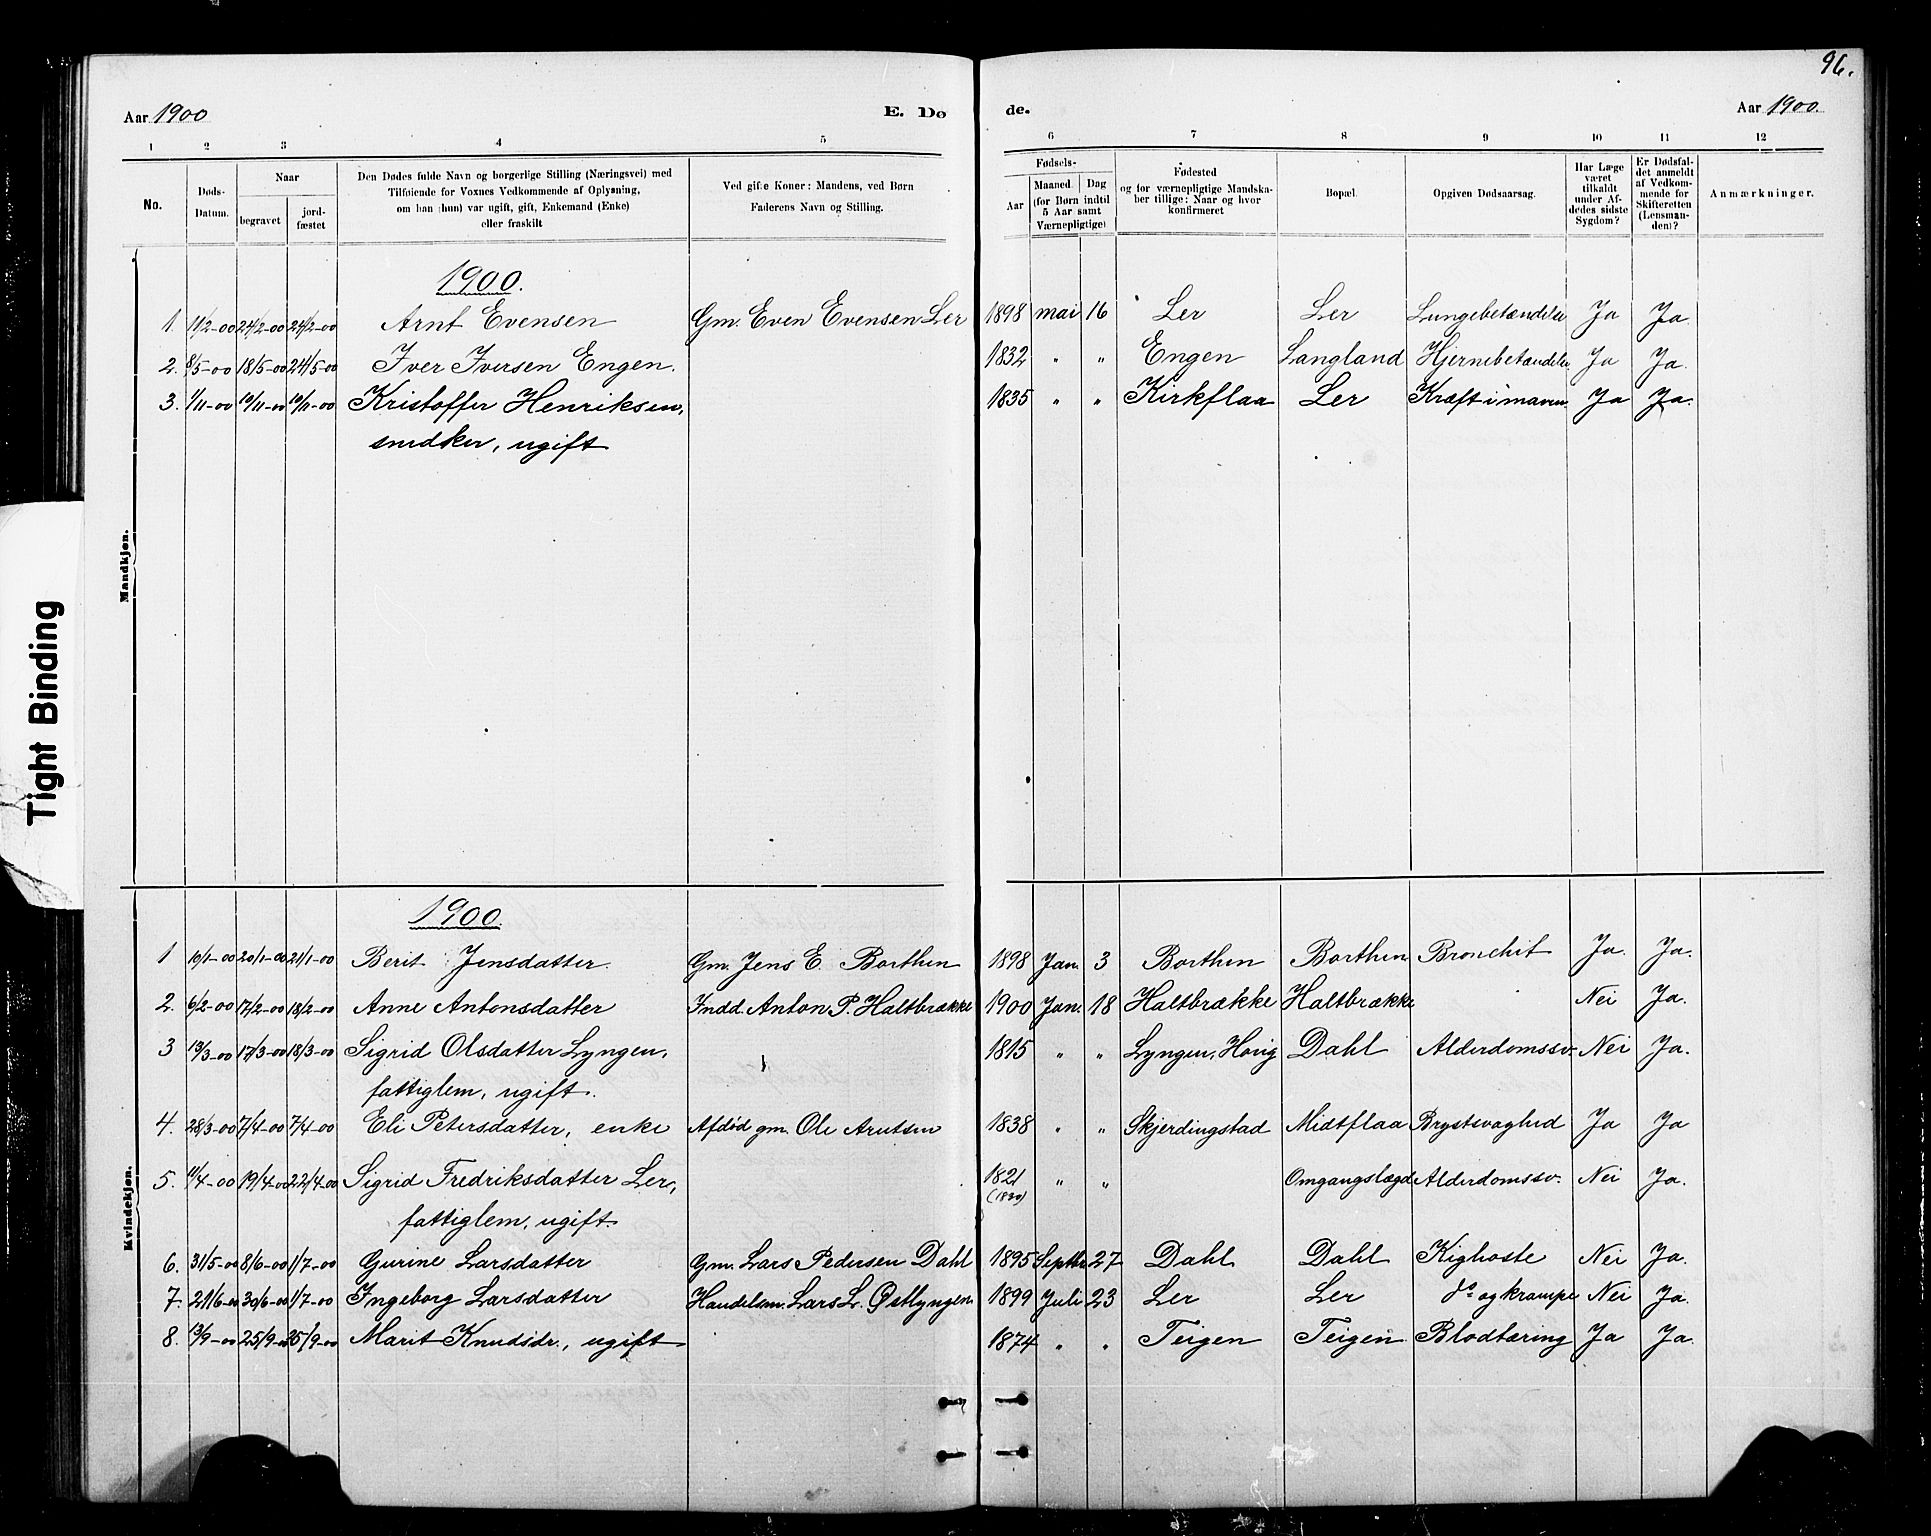 96.
Aar 1900 E. Dø de. Aar 1900.
1 2 3 4 5 6 7 8 9 10 11 12
No.
Døds-Datum.
Naar
begravet
jord-fæstet
Den Dødes fulde Navn og borgerlige Stilling (Næringsvei) med
Tilføiende for Voxnes Vedkommende af Oplysning,
om han (hun) var ugift, gift, Enkemand (Enke)
eller fraskilt
Ved gifte Koner: Mandens, ved Børn
Faderens Navn og Stilling.
Fødsels-
Aar
Maaned. Dag
(for Børn indtil
5 Aar samt
Værnepligtige)
Fødested
og for værnepligtige Mandska-
ber tillige: Naar og hvor
konfirmeret
Bopæl.
Opgiven Dødsaarsag.
Har Læge
været
tilkaldt
under Af-
dødes sidste
Sygdom?
Er Dødsfal-
det anmeldt
af Vedkom-
mende for
Skifteretten
(Lensman-
den)?
Anmærkninger.
Mandkjøn.
1900.
1. 11/2-00 24/2-00 24/2-00 Arnt Evensen Gm. Even Evensen Ler 1898 mai 16 Ler Ler Lungebetændelse Ja Ja.
2. 8/5-00 18/5-00 24/5-00 Iver Iversen Engen. 1832 " " Engen Langland Hjernebetændelse Ja Ja.
3. 1/11-00 10/11-00 10/11-00 Kristoffer Henriksen, 1835 " " Kirkflaa Ler Kræft i maven. Ja Ja.
snedker, ugift
Tight Binding
Kvindekjøn.
1900.
1 10/1-00 20/1-00 21/1-00 Berit Jensdatter. Gm. Jens E. Borthen 1898 Jan. 3 Borthen Borthen Bronchit Ja. Ja.
2. 6/2-00 17/2-00 18/2-00 Anne Antonsdatter Indd. Anton P. Haltbrække 1900 Jan. 18 Haltbrække Haltbrække Nei Ja.
3 13/3-00 17/3-00 18/3-00 Sigrid Olsdatter Lyngen, 1815 " " Lyngen, Horig Dahl Alderdomssv. Nei Ja.
fattiglem, ugift.
4. 28/3-00 7/4-00 7/4-00 Eli Petersdatter, enke Afdød gm. Ole Arntsen 1838 " " Skjerdingstad Midtflaa Brystsvaghed Ja Ja
5. 11/4-00 19/4-00 22/4-00 Sigrid Fredriksdatter Ler, 1821 " " Omgangslægd Alderdomssv. Nei Ja.
fattiglem, ugift.
6. 31/5-00 8/6-00 1/7-00 Gurine Larsdatter Gm. Lars Pedersen Dahl 1895 Septbr 27 Dahl Dahl Kighoste Nei Ja.
7. 21/6-00 30/6-00 1/7-00 Ingeborg Larsdatter Handelsm. Lars L. Østlyngen 1899 Juli 23 Ler Ler do og krampe Nei Ja.
8. 13/9-00 25/9-00 25/9-00 Marit Knudsdr., ugift 1874 " " Teigen Teigen Blodtæring Ja Ja.